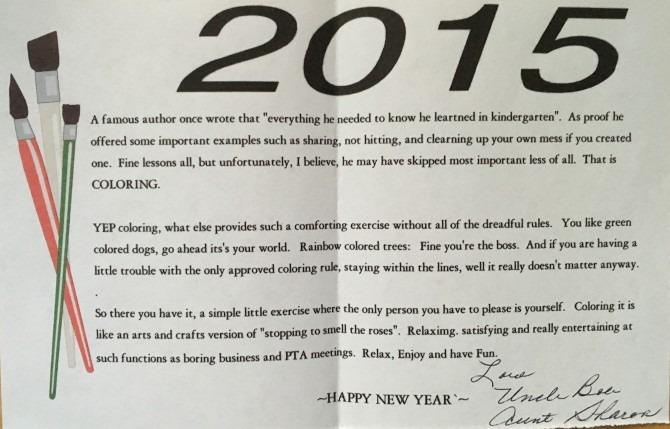 2015
A famous author once wrote that "everything he needed to know he leartned in kindergarten". As proof he
offered some important examples such as sharing, not hitting, and clearning up your own mess if you created
one. Fine lessons all, but unfortunately, I believe, he may have skipped most important less of all. That is
COLORING.
YEP coloring, what else provides such a comforting exercise without all of the dreadful rules. You like green
colored dogs, go ahead its's your world. Rainbow colored trees: Fine you're the boss. And if you are having a
little trouble with the only approved coloring rule, staying within the lines, well it really doesn't matter anyway.
.
So there you have it, a simple little exercise where the only person you have to please is yourself. Coloring it is
like an arts and crafts version of "stopping to smell the roses". Relaximg. satisfying and really entertaining at
such functions as boring business and PTA meetings. Relax, Enjoy and have Fun.
Love
~HAPPY NEW YEAR`~ Uncle Bob
Aunt Sharon